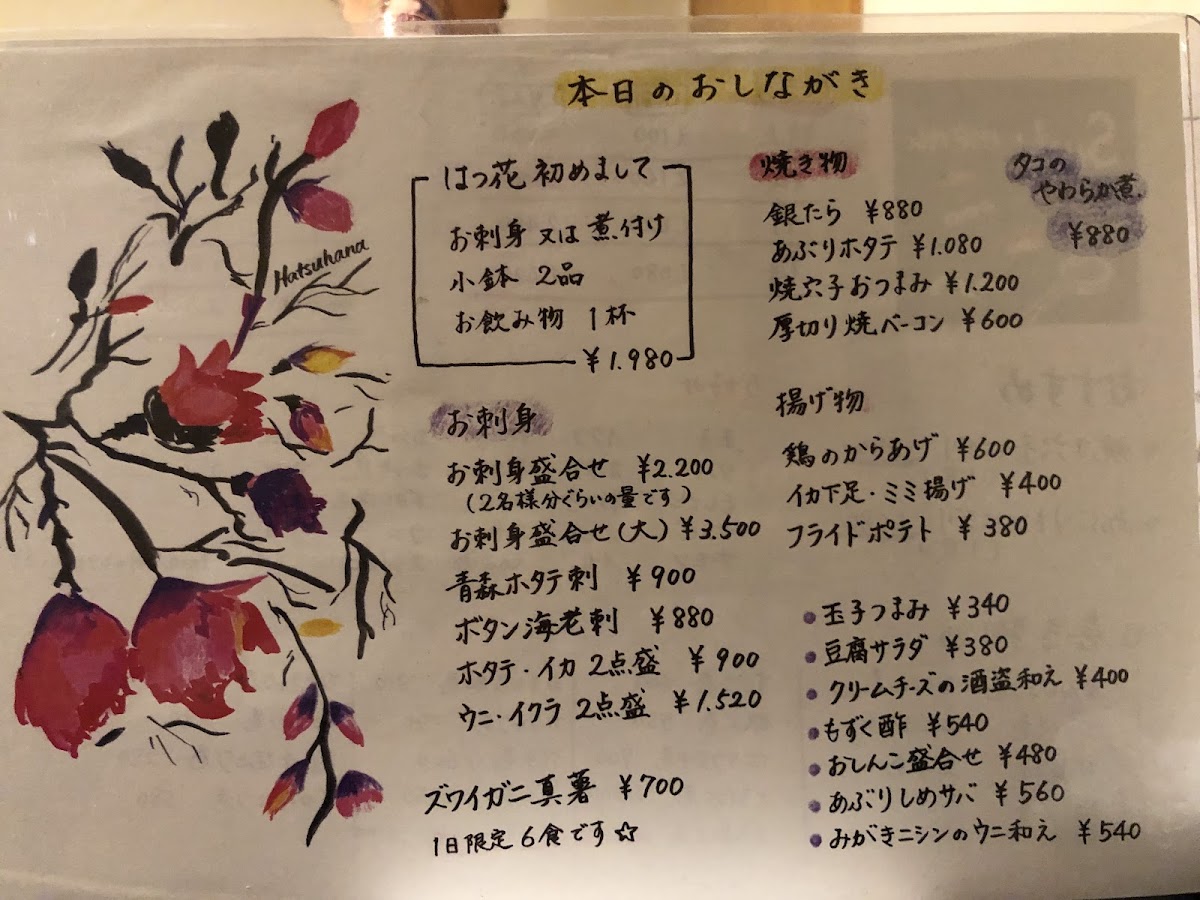 本日のおしながき
Hatsuhana
はつ花 初めまして
お刺身 又は 煮付け
小鉢 2品
お飲み物 1杯
¥1.980
お刺身
お刺身盛合せ ¥2.200
(2名様分ぐらいの量です)
お刺身盛合せ(大) ¥3.500
青森ホタテ刺 ¥900
ボタン海老刺 ¥880
ホタテ・イカ 2点盛 ¥900
ウニ・イクラ 2点盛 ¥1.520
ズワイガニ真薯 ¥700
1日限定6食です☆
焼き物
銀たら ¥880
あぶりホタテ ¥1.080
焼穴子おつまみ ¥1.200
厚切り焼ベーコン ¥600
タコの
やわらか煮
¥880
揚げ物
鶏のからあげ ¥600
イカ下足・ミミ揚げ ¥400
フライドポテト ¥380
玉子つまみ ¥340
豆腐サラダ ¥380
クリームチーズの酒盗和え ¥400
もずく酢 ¥540
おしんこ盛合せ ¥480
あぶりしめサバ ¥560
みがきニシンのウニ和え ¥540